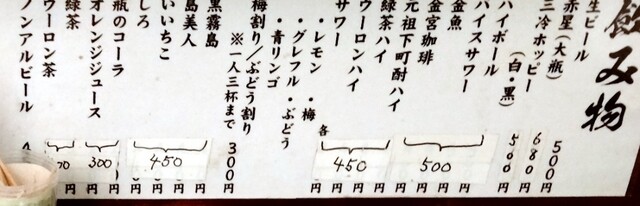 飲み物
生ビール 500円
赤星(大瓶) 680円
三冷ホッピー
(白・黒) 500円
ハイボール
ハイスサワー 円
金魚 円
金宮珈琲 円
元祖下町酎ハイ 円
500
緑茶ハイ 円
ウーロンハイ 円
サワー 各 円
450
・レモン ・梅
・グレフル ・ぶどう
・青リンゴ
梅割り/ぶどう割り 300円
※一人三杯まで
黒霧島 円
島美人 円
いいちこ 円
しろ 円
450
瓶のコーラ 円
オレンジジュース 円
300
緑茶 円
ウーロン茶
70
ノンアルビール 4